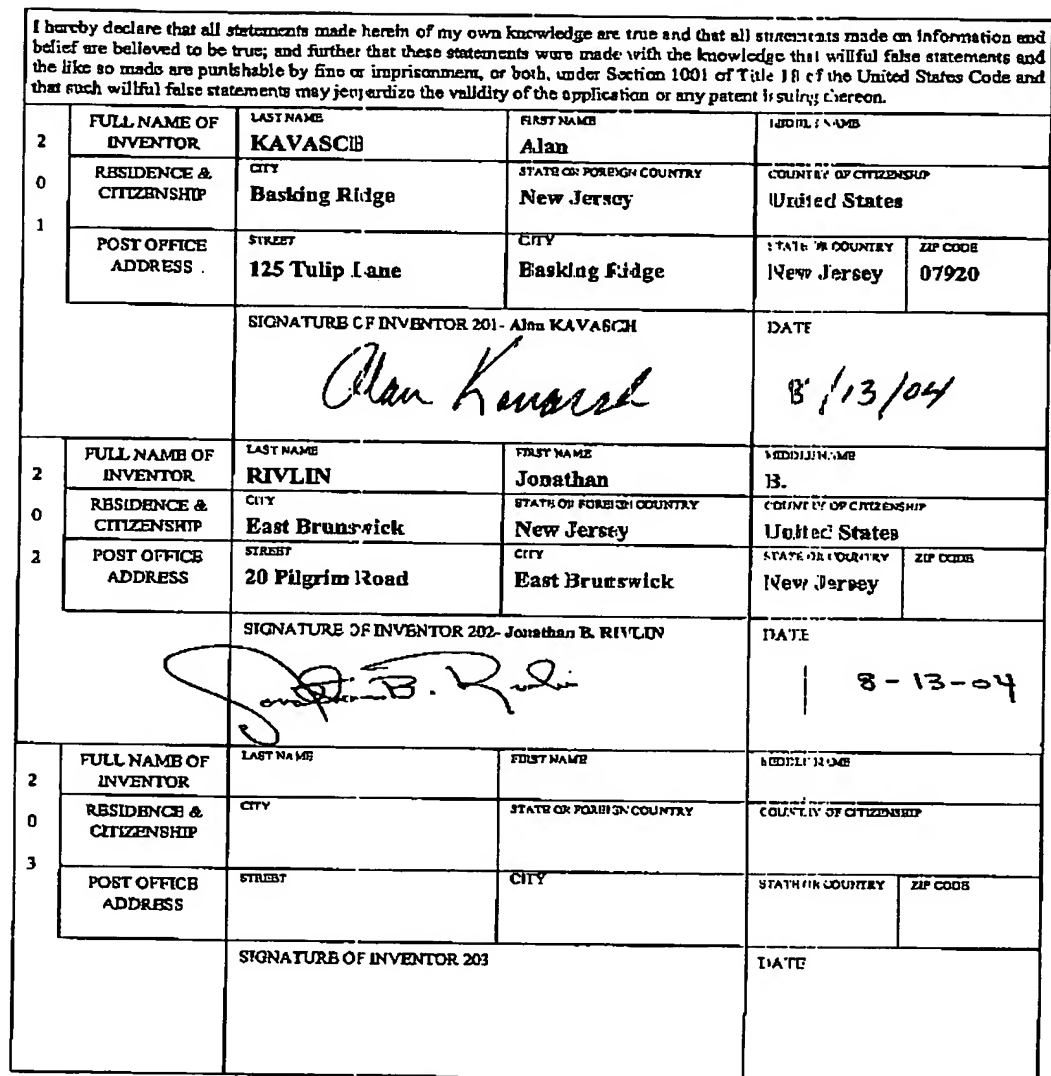 I hereby declare that all statements made herein of my own knowledge are true and that all statements made on information and
belief are believed to be true; and further that these statements were made with the knowledge that willful false statements and
the like so made are punishable by fine or imprisonment, or both, under Section 1001 of Title 18 of the United States Code and
that such willful false statements may jeopardize the validity of the application or any patent issuing thereon.
2 0 1
FULL NAME OF INVENTOR
LAST NAME
KAVASCH
FIRST NAME
Alan
MIDDLE NAME
RESIDENCE & CITIZENSHIP
CITY
Basking Ridge
STATE OR FOREIGN COUNTRY
New Jersey
COUNTRY OF CITIZENSHIP
United States
POST OFFICE ADDRESS
STREET
125 Tulip Lane
CITY
Basking Ridge
STATE OR COUNTRY
New Jersey
ZIP CODE
07920
SIGNATURE OF INVENTOR 201- Alan KAVASCH
Alan Kavasch
DATE
8/13/04
2 0 2
FULL NAME OF INVENTOR
LAST NAME
RIVLIN
FIRST NAME
Jonathan
MIDDLE NAME
B.
RESIDENCE & CITIZENSHIP
CITY
East Brunswick
STATE OR FOREIGN COUNTRY
New Jersey
COUNTRY OF CITIZENSHIP
United States
POST OFFICE ADDRESS
STREET
20 Pilgrim Road
CITY
East Brunswick
STATE OR COUNTRY
New Jersey
ZIP CODE
SIGNATURE OF INVENTOR 202- Jonathan B. RIVLIN
Jonathan B. Rivlin
DATE
8-13-04
2 0 3
FULL NAME OF INVENTOR
LAST NAME
FIRST NAME
MIDDLE NAME
RESIDENCE & CITIZENSHIP
CITY
STATE OR FOREIGN COUNTRY
COUNTRY OF CITIZENSHIP
POST OFFICE ADDRESS
STREET
CITY
STATE OR COUNTRY
ZIP CODE
SIGNATURE OF INVENTOR 203
DATE